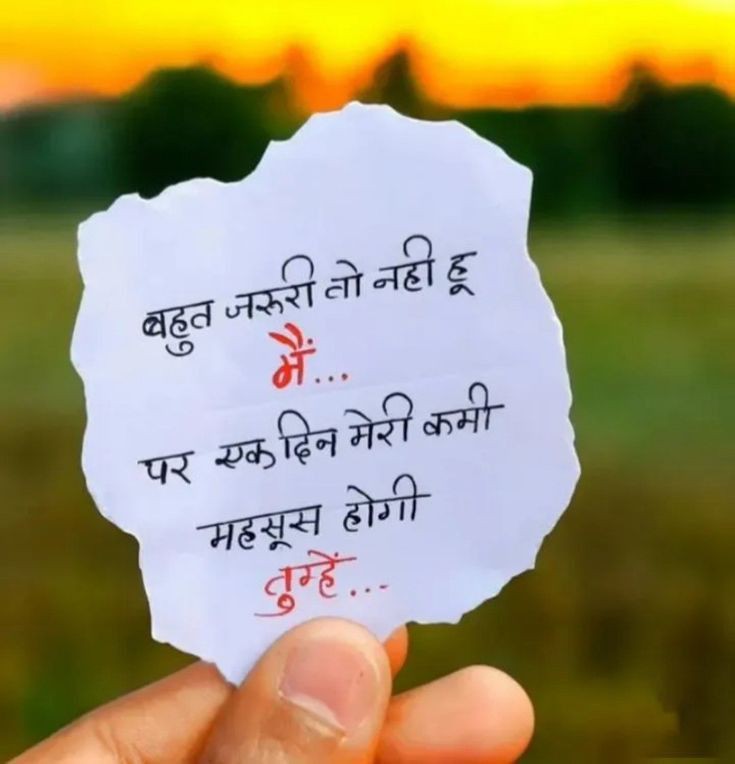 बहुत जरुरी तो नही हू
मैं...
पर एक दिन मेरी कमी
महसूस होगी
तुम्हें...